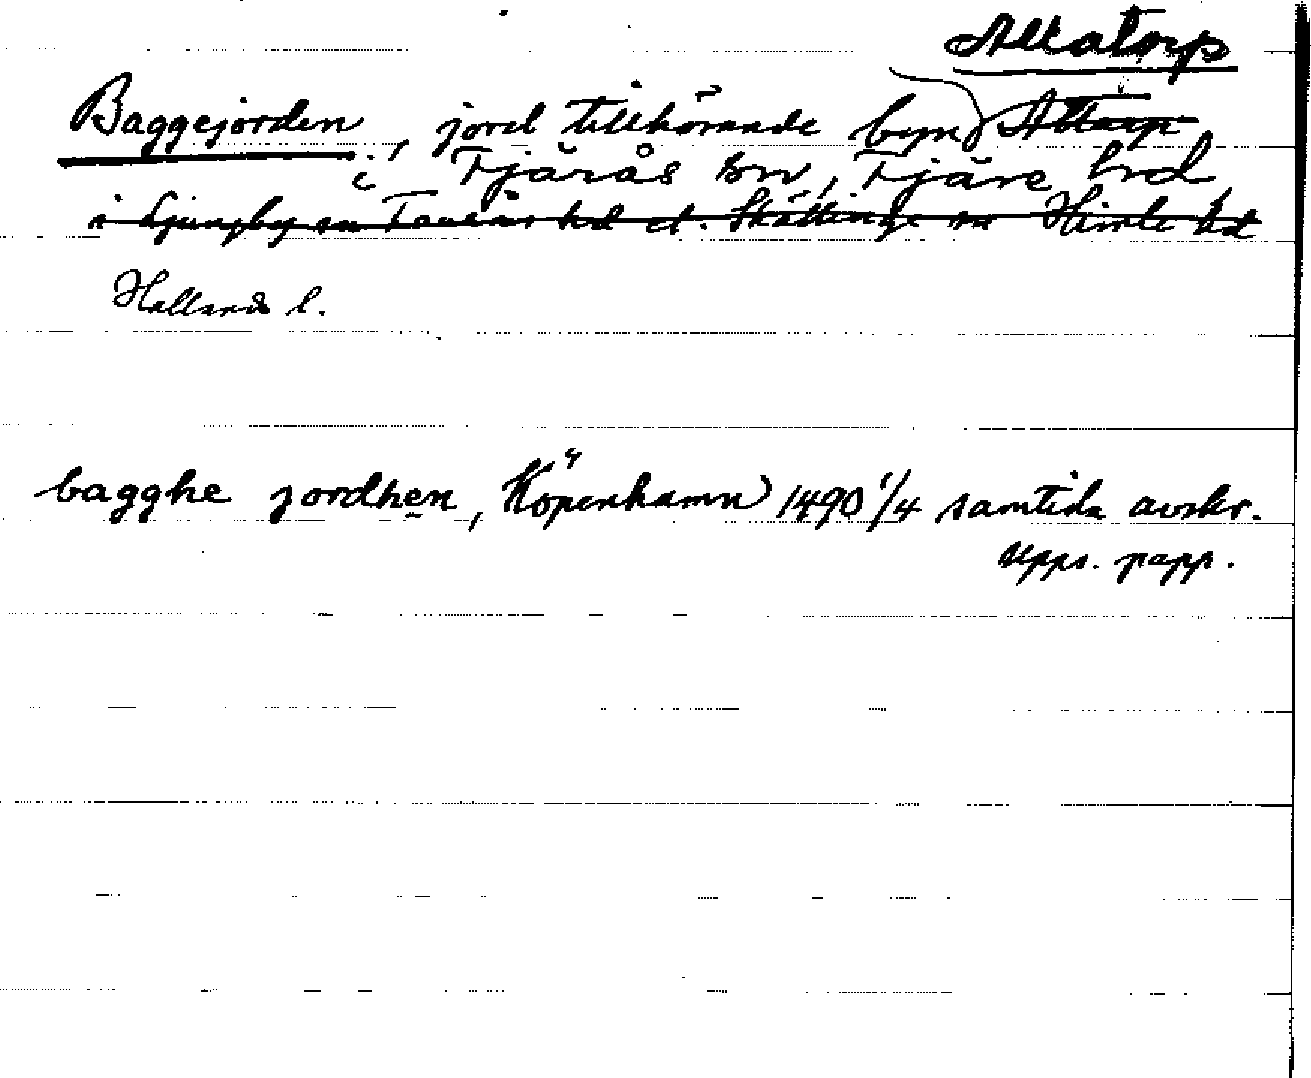 Allatorp
Baggejorden, jord tillhörande byn Attarp
i Fjärås sn, Fjäre hrd
i Ljungby sn Faurås hd el. Skällinge sn Himle hd
Hallands l.
bagghe jordhen, Köpenhamn 1490 1/4 samtida avskr.
Upps. papp.